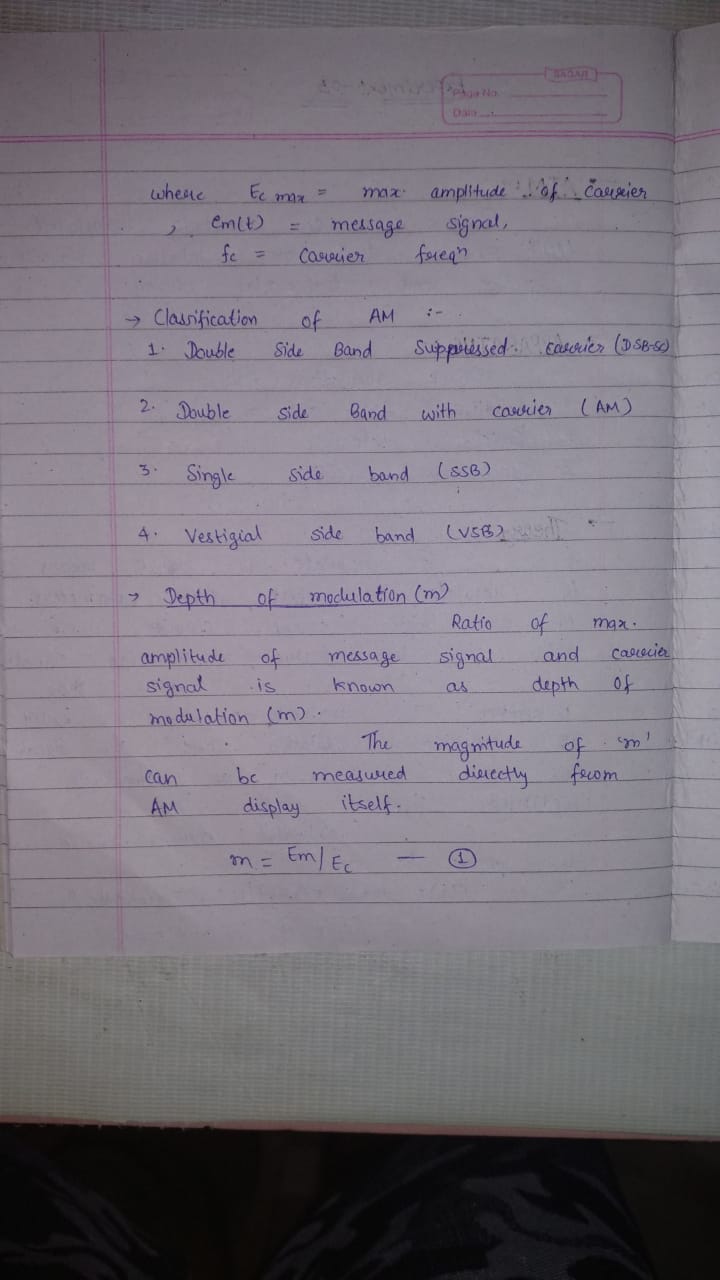 SAGAR
Page No.
Date
where Ec max = max. amplitude of carrier
, em(t) = message signal,
fc = carrier freqn
→ Classification of AM :-
1. Double Side Band Suppressed carrier (DSB-SC)
2. Double side Band with carrier (AM)
3. Single side band (SSB)
4. Vestigial side band (VSB)
→ Depth of modulation (m)
Ratio of max.
amplitude of message signal and carrier
signal is known as depth of
modulation (m).
The magnitude of 'm'
can be measured directly from
AM display itself.
m = Em/Ec — ①